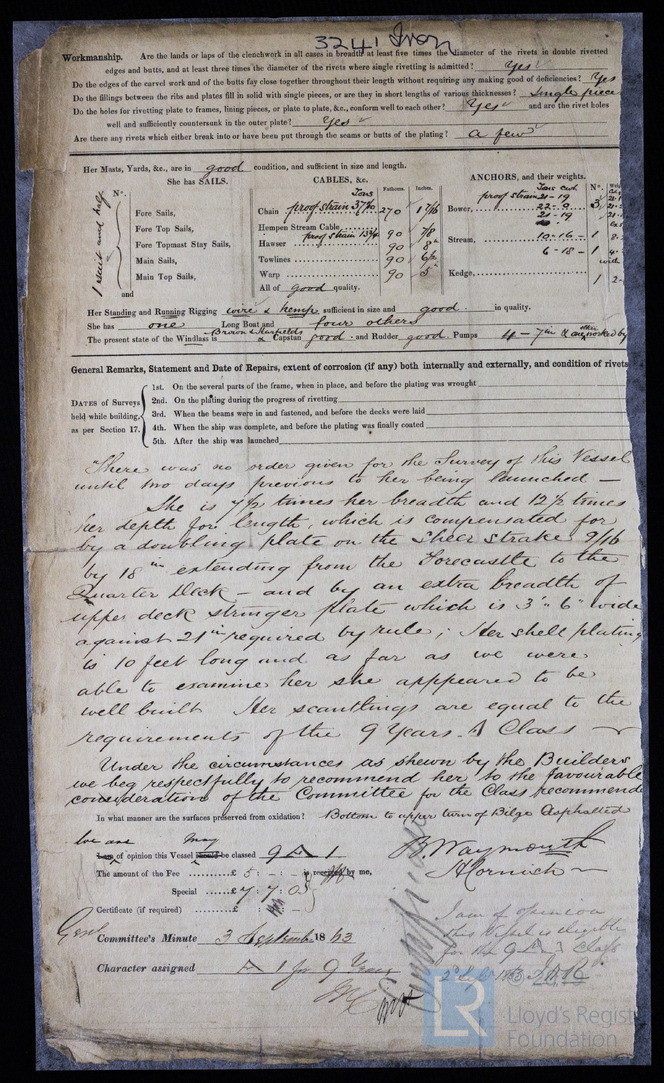 3241 Iron
Workmanship. Are the lands or laps of the clenchwork in all cases in breadth at least five times the diameter of the rivets in double rivetted
edges and butts, and at least three times the diameter of the rivets where single rivetting is admitted? Yes
Do the edges of the carvel work and of the butts fay close together throughout their length without requiring any making good of deficiencies? Yes
Do the fillings between the ribs and plates fill in solid with single pieces, or are they in short lengths of various thicknesses? Single piece
Do the holes for rivetting plate to frames, lining pieces, or plate to plate, &c., conform well to each other? Yes and are the rivet holes
well and sufficiently countersunk in the outer plate? Yes
Are there any rivets which either break into or have been put through the seams or butts of the plating? a few
Her Masts, Yards, &c., are in good condition, and sufficient in size and length.
She has SAILS. CABLES, &c. ANCHORS, and their weights.
N°. Tons Fathoms. Inches. Tons cwt N°.
Fore Sails, Chain proof strain 270 1 7/16 Bower, proof strain 21-19 3
Fore Top Sails, Hempen Stream Cable 90 7/8 22-9
Fore Topmast Stay Sails, Hawser proof strain 90 8 21-19
Main Sails, Towlines 90 Stream, 10-16 - 1
Main Top Sails, Warp 90 5 6-18 - 1
1 suit and half
and All of good quality. Kedge, 1
Her Standing and Running Rigging wire & hemp sufficient in size and good in quality.
She has one Long Boat and four others
The present state of the Windlass is Brown & Harfields & Capstan good and Rudder good Pumps 4 - 7in & an other worked by
General Remarks, Statement and Date of Repairs, extent of corrosion (if any) both internally and externally, and condition of rivets
DATES of Surveys held while building, as per Section 17.
1st. On the several parts of the frame, when in place, and before the plating was wrought
2nd. On the plating during the progress of rivetting
3rd. When the beams were in and fastened, and before the decks were laid
4th. When the ship was complete, and before the plating was finally coated
5th. After the ship was launched
There was no order given for the Survey of this Vessel
until two days previous to her being launched —
She is 7 1/2 times her breadth and 12 1/2 times
her depth for length, which is compensated for
by a doubling plate on the sheer strake 9/16
by 18 in extending from the Forecastle to the
Quarter Deck - and by an extra breadth of
upper deck stringer plate which is 3' 6" wide
against 21 in required by rule; Her shell plating
is 10 feet long and as far as we were
able to examine her she appeared to be
well built Her scantlings are equal to the
requirements of the 9 Years A Class
Under the circumstances as shewn by the Builders
we beg respectfully to recommend her to the favourable
consideration of the Committee for the Class recommend
In what manner are the surfaces preserved from oxidation? Bottom to upper turn of Bilge Asphalted
We are may
I am of opinion this Vessel should be classed 9 A 1 B. Waymouth
The amount of the Fee ......£ 5 : - : - is received by me, H Cornish
Special ......£ 7 : 7 : 0
Certificate (if required) ......£ : : -
I am of opinion
this Vessel is eligible
for the 9 A 1 Class
Committee's Minute 3 September 1863
Character assigned A 1 for 9 Years
Lloyd's Regist
Foundation
LR